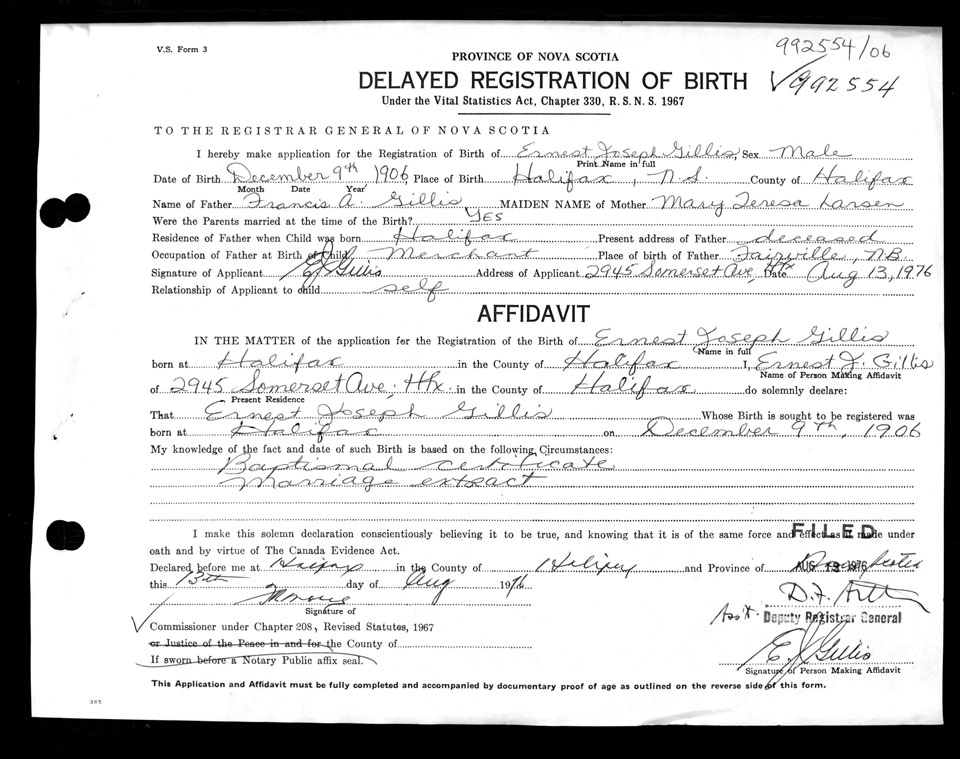 V.S. Form 3
992554/06
PROVINCE OF NOVA SCOTIA
DELAYED REGISTRATION OF BIRTH
✓992554
Under the Vital Statistics Act, Chapter 330, R.S.N.S. 1967
TO THE REGISTRAR GENERAL OF NOVA SCOTIA
I hereby make application for the Registration of Birth of Ernest Joseph Gillis, Sex Male
Print Name in full
Date of Birth December 9th 1906, Place of Birth Halifax, N.S. County of Halifax
Month Date Year
Name of Father Francis A. Gillis MAIDEN NAME of Mother Mary Teresa Larsen
Were the Parents married at the time of the Birth? YES
Residence of Father when Child was born Halifax Present address of Father deceased
Occupation of Father at Birth of Child Merchant Place of birth of Father Fairville, N.B.
Signature of Applicant E J Gillis Address of Applicant 2945 Somerset Ave, Hfx Date Aug 13, 1976
Relationship of Applicant to child self
AFFIDAVIT
IN THE MATTER of the application for the Registration of the Birth of Ernest Joseph Gillis
Name in full
born at Halifax in the County of Halifax I, Ernest J. Gillis
Name of Person Making Affidavit
of 2945 Somerset Ave; Hfx. in the County of Halifax do solemnly declare:
Present Residence
That Ernest Joseph Gillis Whose Birth is sought to be registered was
born at Halifax on December 9th, 1906
My knowledge of the fact and date of such Birth is based on the following Circumstances:
Baptismal certificate
Marriage extract
I make this solemn declaration conscientiously believing it to be true, and knowing that it is of the same force and effect as if made under
FILED
oath and by virtue of The Canada Evidence Act.
Declared before me at Halifax in the County of Halifax and Province of Nova Scotia
AUG 13 1976
this 13th day of Aug 1976
D.F.
Signature of
Ass't. Deputy Registrar General
✓ Commissioner under Chapter 208, Revised Statutes, 1967
or Justice of the Peace in and for the County of
E J Gillis
If sworn before a Notary Public affix seal.
Signature of Person Making Affidavit
This Application and Affidavit must be fully completed and accompanied by documentary proof of age as outlined on the reverse side of this form.
385